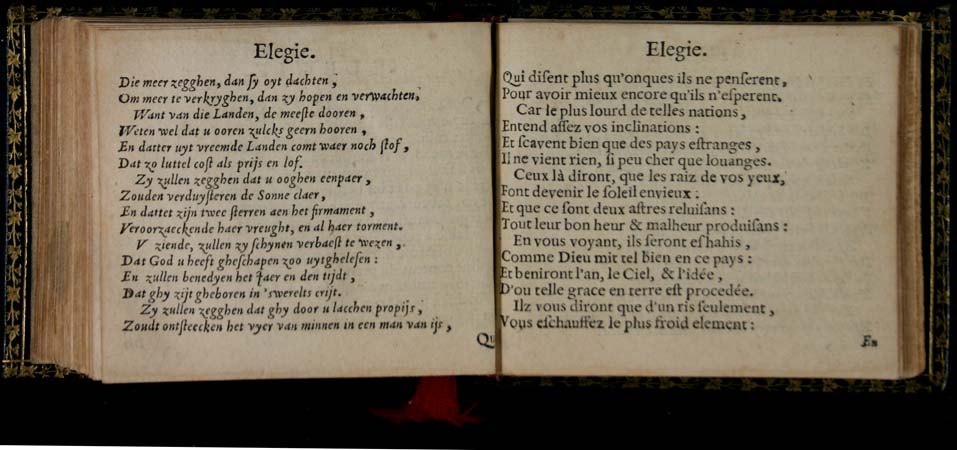 Elegie.
Die meer zegghen, dan ſy oyt dachten,
Om meer te verkryghen, dan zy hopen en verwachten.
Want van die Landen, de meeſte dooren,
Weten wel dat u ooren zulcks geern hooren,
En datter uyt vreemde Landen comt waer noch ſtof,
Dat zo luttel coſt als prijs en lof.
Zy zullen zegghen dat u ooghen eenpaer,
Zouden verduyſteren de Sonne claer,
En dattet zijn twee ſterren aen het firmament,
Veroorzaeckende haer vreught, en al haer torment.
V ziende, zullen zy ſchynen verbaeſt te wezen,
Dat God u heeft gheſchapen zoo uytgheleſen:
En zullen benedyen het Jaer en den tijdt,
Dat ghy zijt gheboren in 'swerelts crijt.
Zy zullen zegghen dat ghy door u lacchen propijs,
Zoudt ontſteecken het vyer van minnen in een man van ijs,
Qu
Elegie.
Qui diſent plus qu'onques ils ne penſerent,
Pour avoir mieux encore qu'ils n'eſperent.
Car le plus lourd de telles nations,
Entend aſſez vos inclinations:
Et ſcavent bien que des pays eſtranges,
Il ne vient rien, ſi peu cher que louanges.
Ceux là diront, que les raiz de vos yeux,
Font devenir le ſoleil envieux:
Et que ce ſont deux aſtres reluiſans:
Tout leur bon heur & malheur produiſans:
En vous voyant, ils ſeront eſhahis,
Comme Dieu mit tel bien en ce pays:
Et beniront l'an, le Ciel, & l'idée,
D'ou telle grace en terre eſt procedée.
Ilz vous diront que d'un ris ſeulement,
Vous eſchauffez le plus froid element:
En